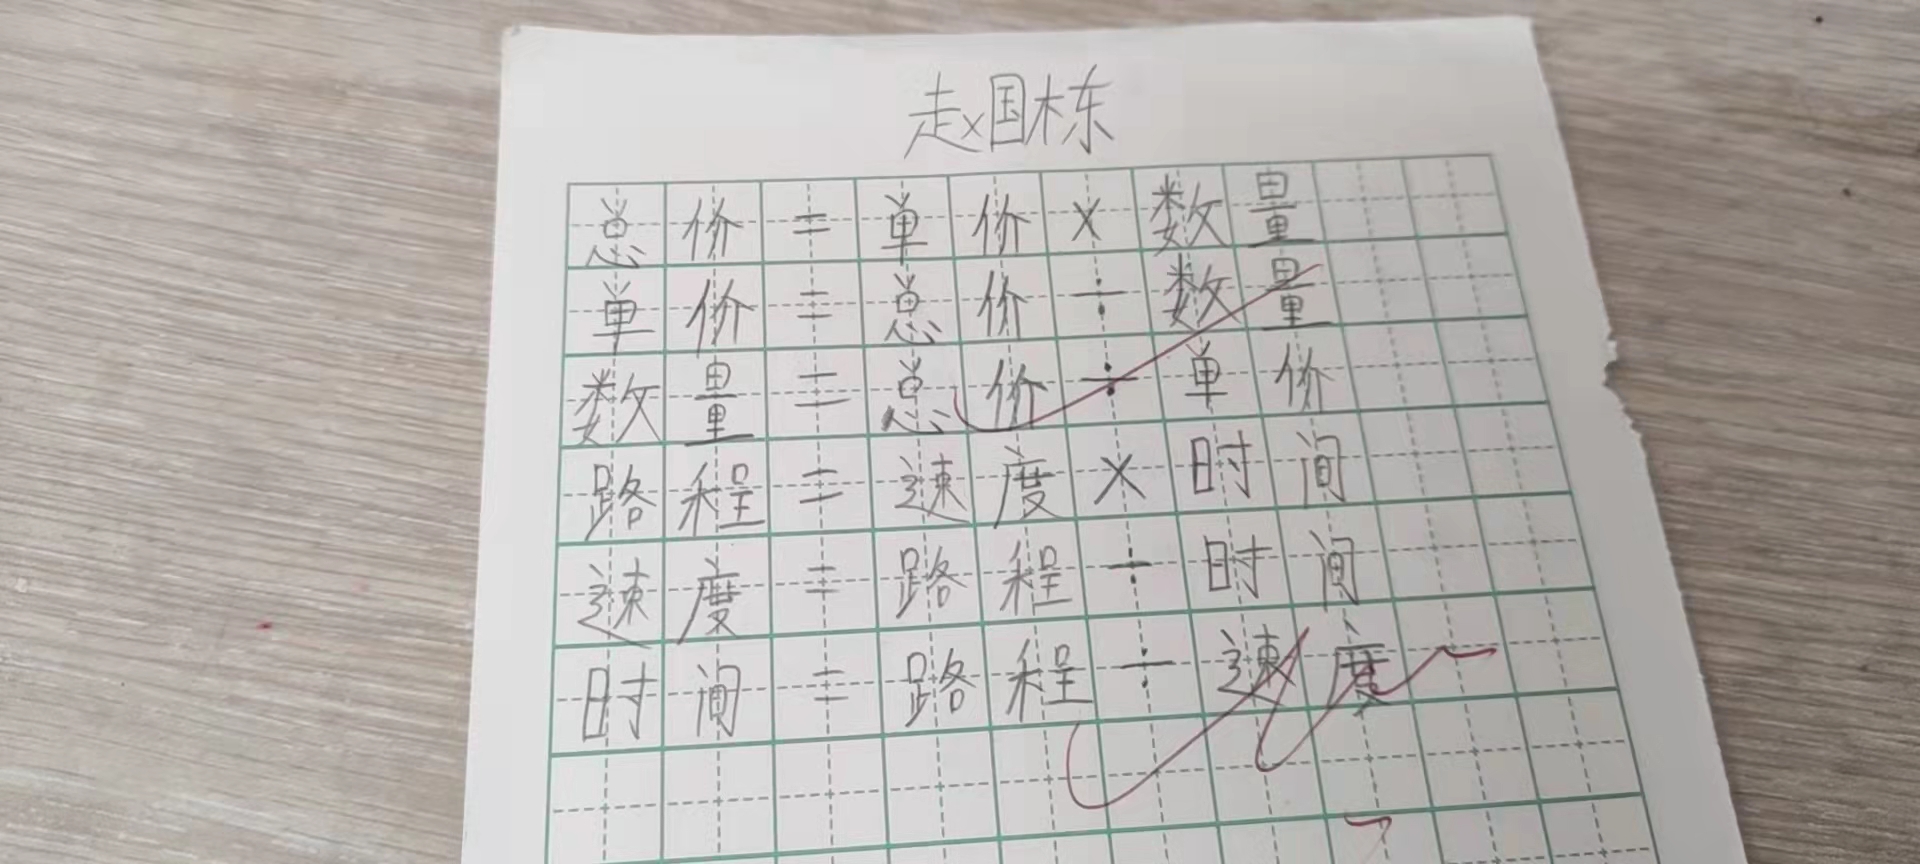 赵国栋
总价=单价×数量
单价=总价÷数量
数量=总价÷单价
路程=速度×时间
速度=路程÷时间
时间=路程÷速度